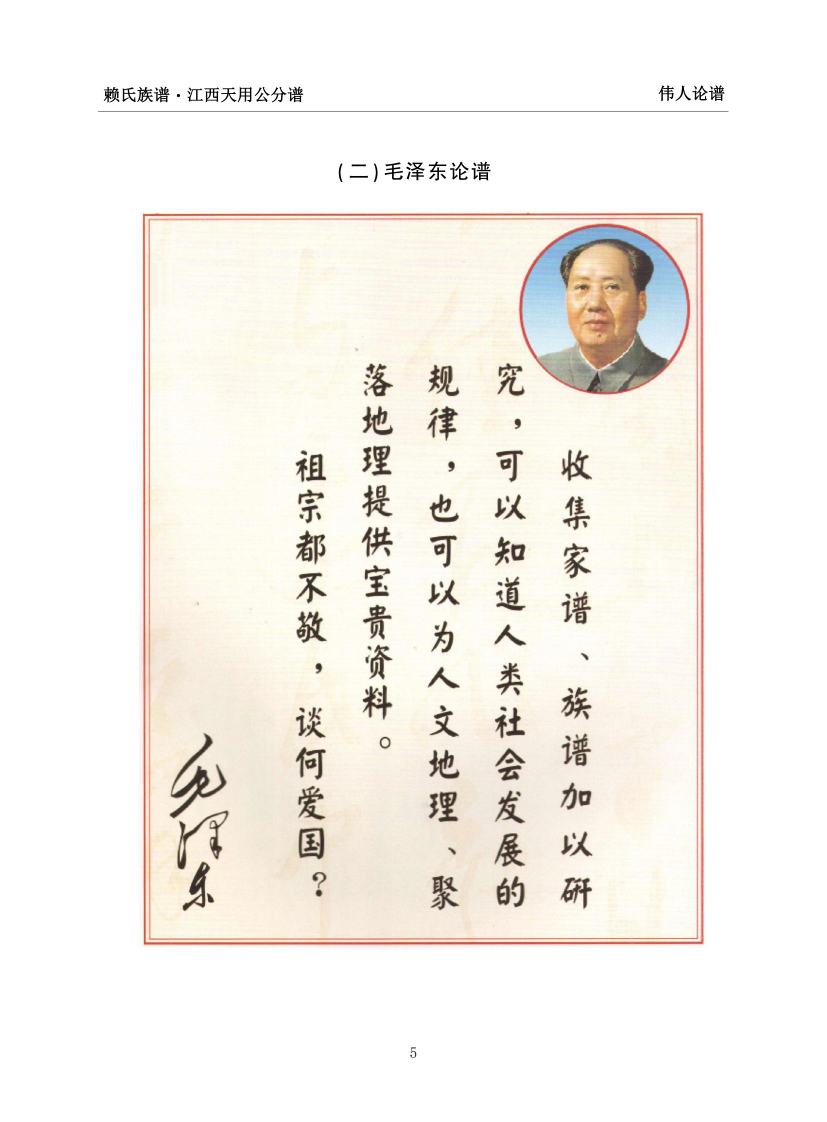 赖氏族谱·江西天用公分谱
伟人论谱
(二)毛泽东论谱
收集家谱、族谱加以研
究，可以知道人类社会发展的
规律，也可以为人文地理、聚
落地理提供宝贵资料。
祖宗都不敬，谈何爱国？
毛泽东
5